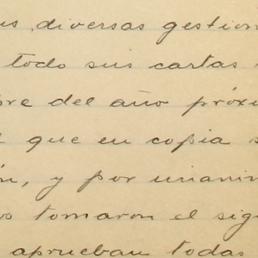 us diversas gestion
todo sus cartas
re del año próxi
que en copia s
ón, y por unanim
os tomaron el sig
aprueban todas